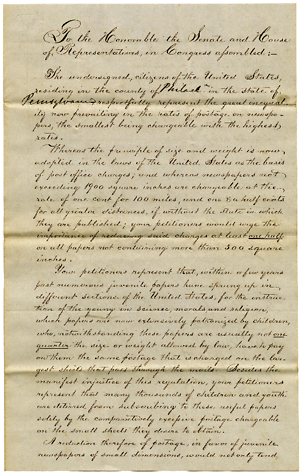 To the Honorable the Senate and House
of Representations, in Congress assembled:-
The undersigned, citizens of the United States,
residing in the county of Philad in the state of
Pennsylvania respectfully represent the great inequal
ity now prevailing in the rates of postage on newspa-
pers, the smallest being chargeable with the highest
rates.
Whereas the principle of size and weight is now
adopted in the laws of the United States as the basis
of post office charges; and whereas newspapers not
exceeding 1900 square inches are chargeable at the
rate of one cent for 100 miles, and one & a half cents
for all greater distances, if without the State in which
they are published; your petitioners would urge the
importance of reducing said charges at least one half
on all papers not containing more than 500 square
inches.
Your petitioners represent that, within a few years
past numerous juvenile papers have sprung up in
different sections of the United States, for the instruc
tion of the young in science, morals and religion,
which papers are now extensively patronized by children
who, notwithstanding these papers are usually not one
quarter the size or weight allowed by law, have to pay
on them the same postage that is charged on the lar
gest sheets that pass through the mails. Besides the
manifest injustice of this regulation, your petitioners
represent that many thousands of children and youth
are deterred from subscribing to these useful papers
solely by the comparatively excessive postage chargeable
on the small sheets they desire to obtain.
A reduction therefore of postage, in favor of juvenile
newspapers of small dimensions, would not only tend